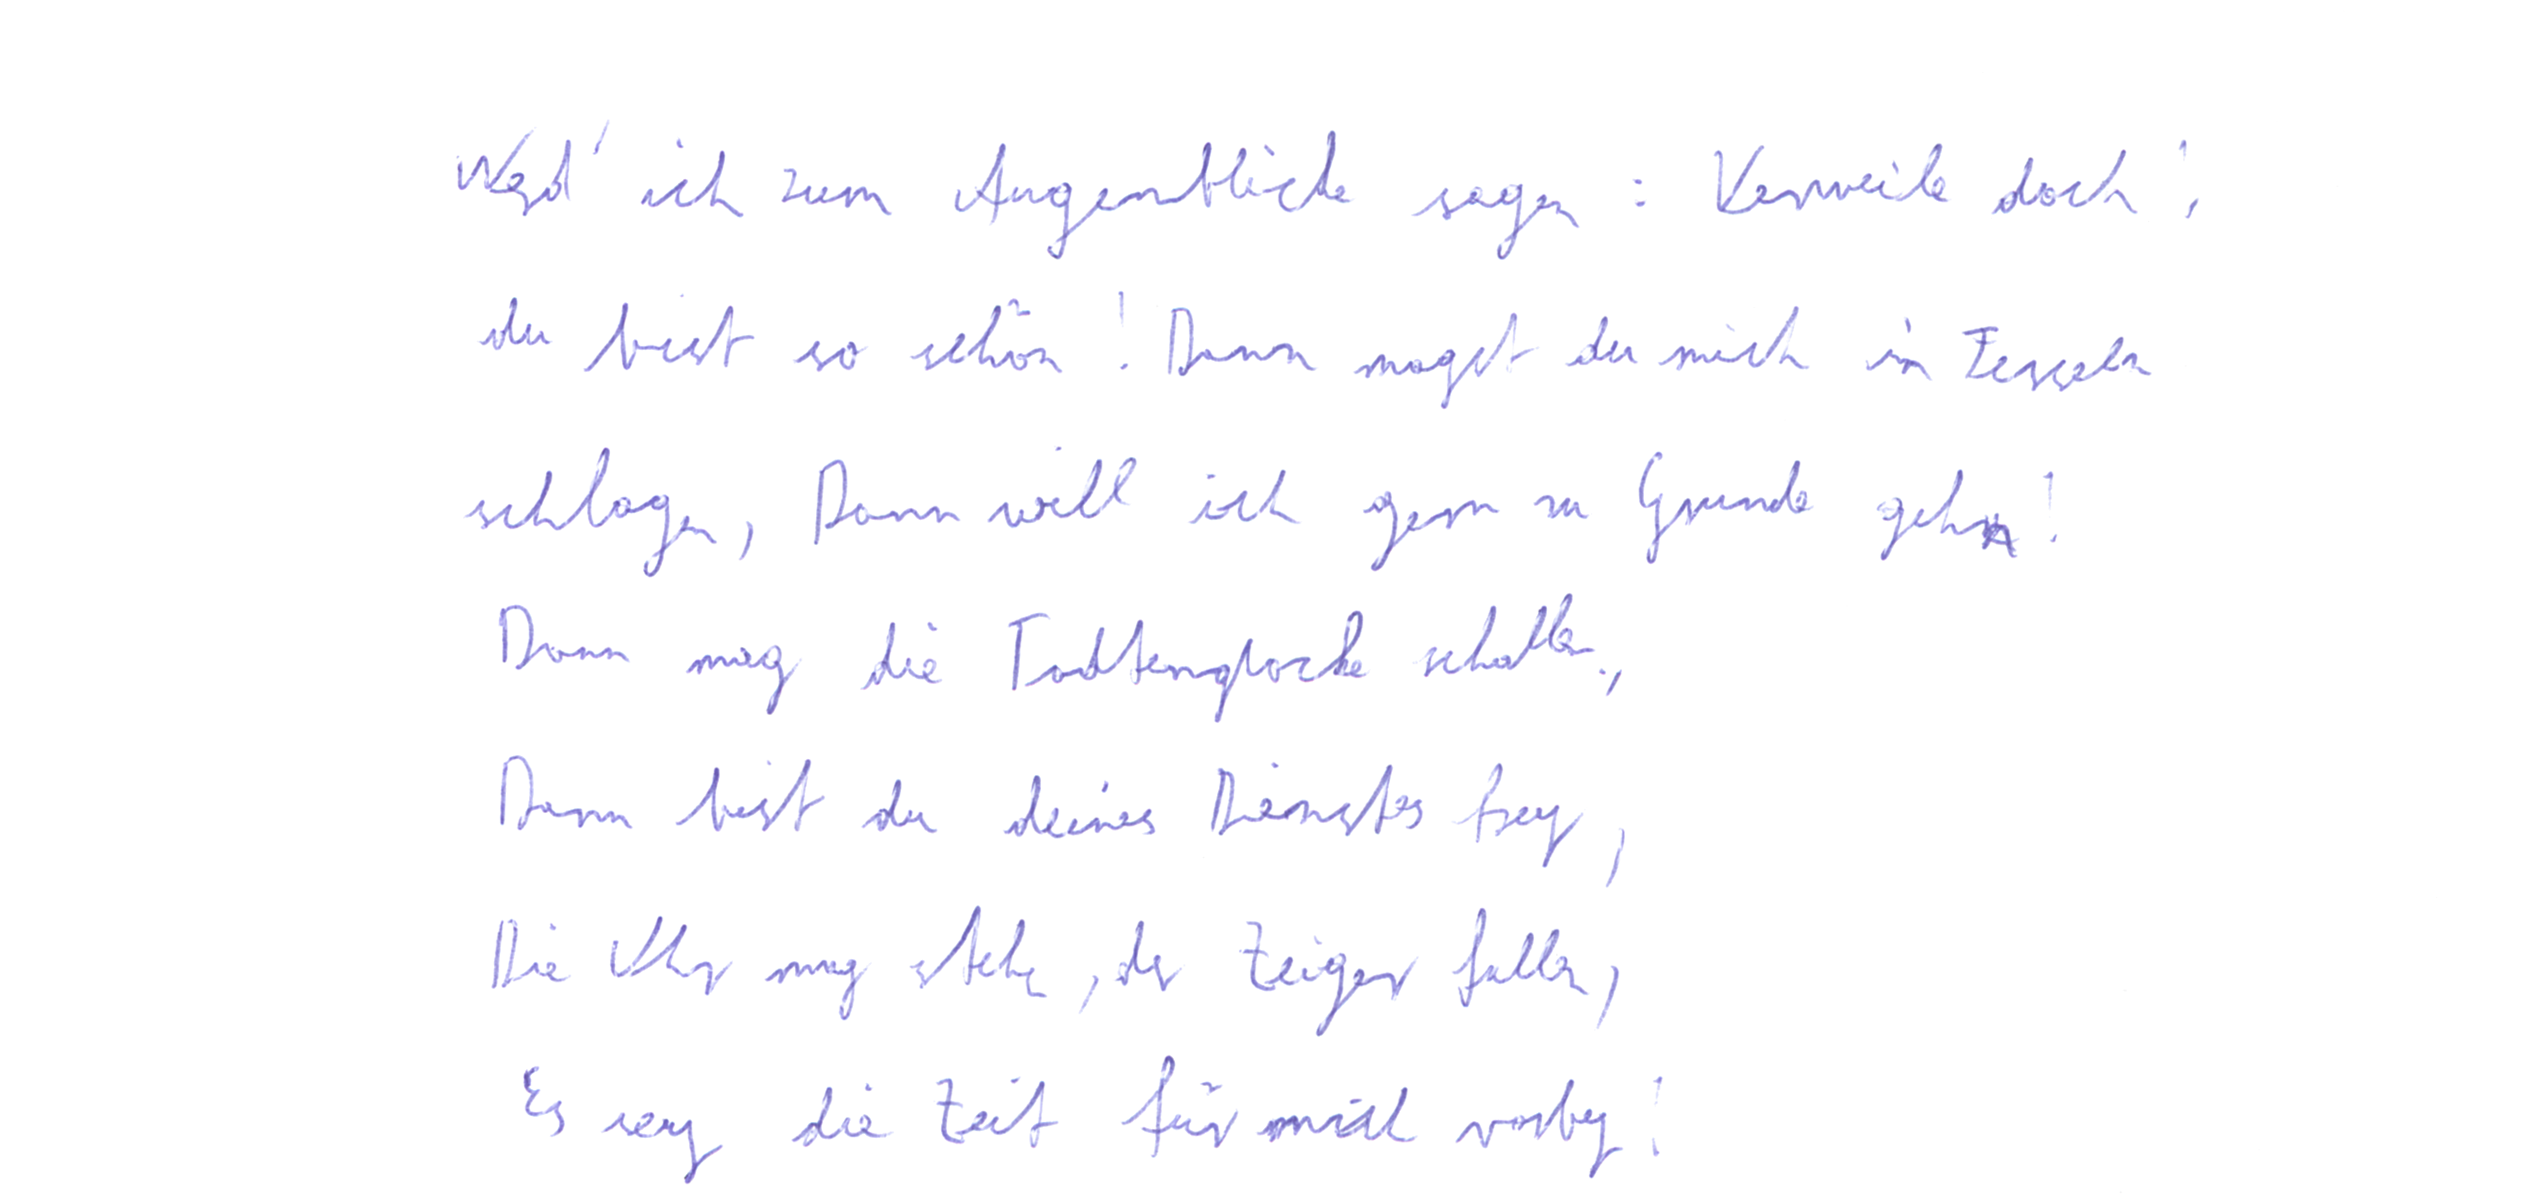 Werd' ich zum Augenblicke sagen: Verweile doch!,
du bist so schön! Dann magst du mich in Fesseln
schlagen, Dann will ich gern zu Grunde gehn!
Dann mag die Todtenglocke schallen,
Dann bist du deines Dienstes frey,
Die Uhr mag stehn, der Zeiger fallen,
Es sey die Zeit für mich vorbey!